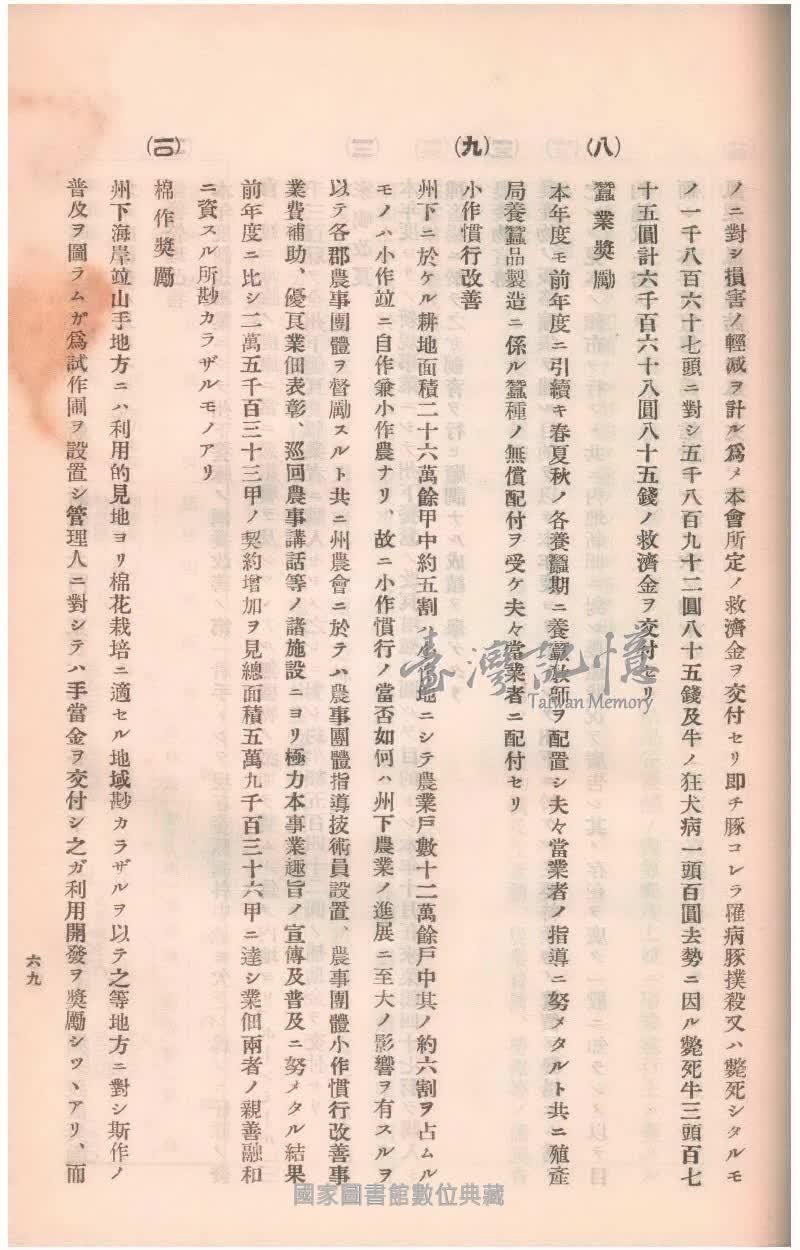 ノニ對シ損害ノ輕減ヲ計ル爲メ本會所定ノ救濟金ヲ交付セリ即チ豚コレラ罹病豚撲殺又ハ斃死シタルモ
ノ一千八百六十七頭ニ對シ五千八百九十二圓八十五錢及牛ノ狂犬病一頭百圓去勢ニ因ル斃死牛三頭百七
十五圓計六千百六十八圓八十五錢ノ救濟金ヲ交付セリ
(八)
蠶業奬勵
本年度モ前年度ニ引續キ春夏秋ノ各養蠶期ニ養蠶敎師ヲ配置シ夫々當業者ノ指導ニ努メタルト共ニ殖產
局養蠶品製造ニ係ル蠶種ノ無償配付ヲ受ケ夫々當業者ニ配付セリ
(九)
小作慣行改善
州下ニ於ケル耕地面積二十六萬餘甲中約五割ハ小作地ニシテ農業戶數十二萬餘戶中其ノ約六割ヲ占ムル
モノハ小作竝ニ自作兼小作農ナリ、故ニ小作慣行ノ當否如何ハ州下農業ノ進展ニ至大ノ影響ヲ有スルヲ
以テ各郡農事團體ヲ督勵スルト共ニ州農會ニ於テハ農事團體指導技術員設置、農事團體小作慣行改善事
業費補助、優良業佃表彰、巡回農事講話等ノ諸施設ニヨリ極力本事業趣旨ノ宣傳及普及ニ努メタル結果
前年度ニ比シ二萬五千百三十三甲ノ契約增加ヲ見總面積五萬九千百三十六甲ニ達シ業佃兩者ノ親善融和
ニ資スル所尠カラザルモノアリ
(一〇)
棉作奬勵
州下海岸竝山手地方ニハ利用的見地ヨリ棉花栽培ニ適セル地域尠カラザルヲ以テ之等地方ニ對シ斯作ノ
普及ヲ圖ラムガ爲試作圃ヲ設置シ管理人ニ對シテハ手當金ヲ交付シ之ガ利用開發ヲ奬勵シツヽアリ、而
六九
臺灣記憶
Taiwan Memory
國家圖書館數位典藏